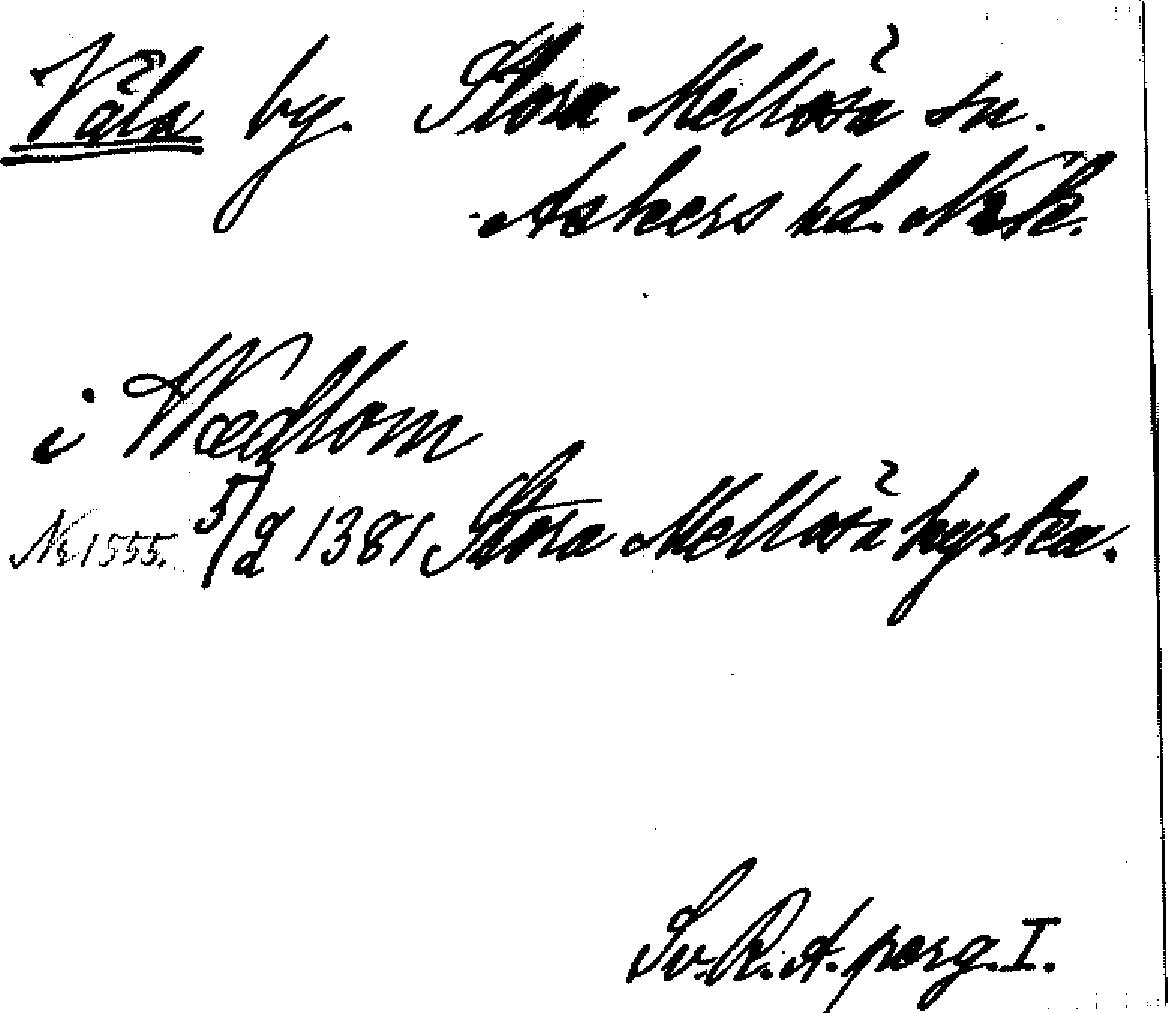 Våla by. Stora Mellösa sn.
Askers hd. Nrk.
i Wædhlom
No 1555. 5/2 1381 Stora Mellösa kyrka.
Sv. R. A. perg. I.